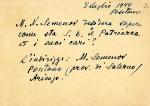 8 luglio 1944
Positano
M. N. Semenov desidera sapere
come sta S. B. le Patriarca
et i suoi cari?
L'indirizzo: M. Semenov
Positano (prov. di Salerno)
Arienzo.